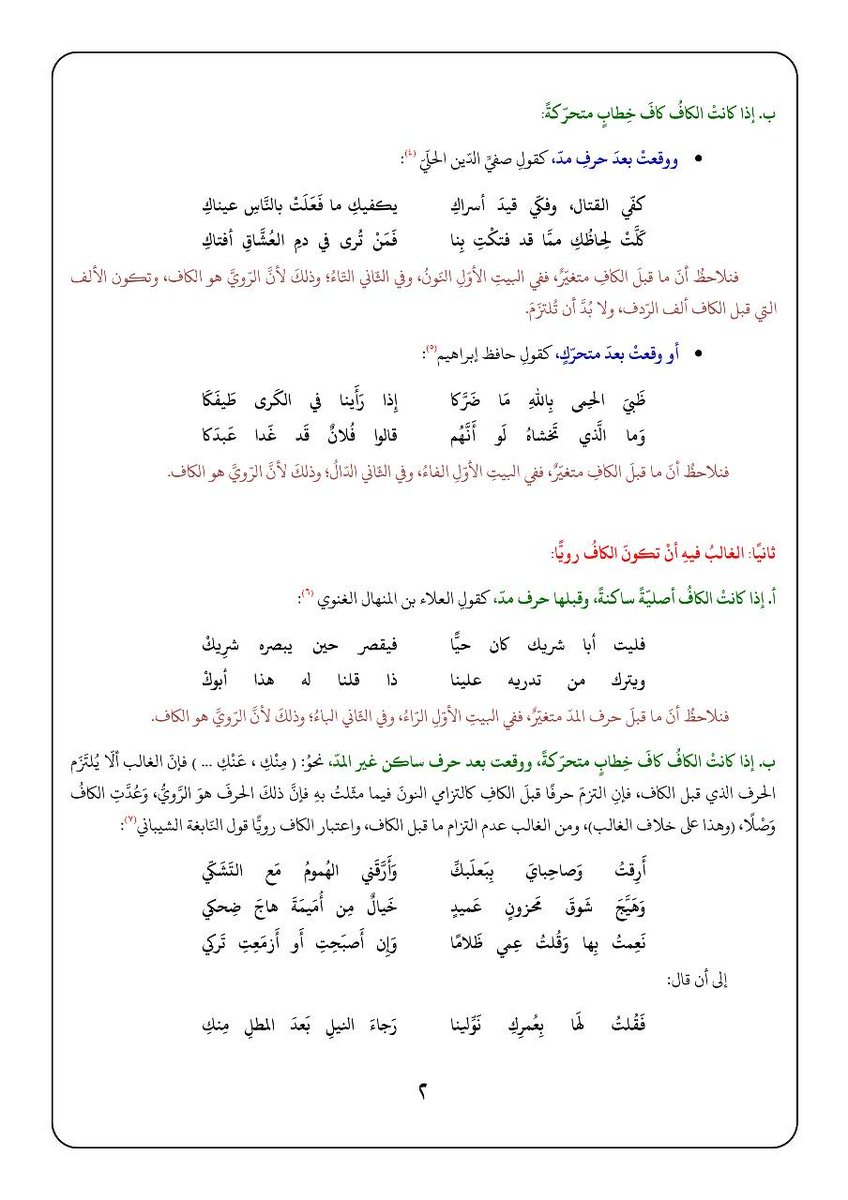 ب. إذا كانتْ الكافُ كافَ خِطابٍ متحرّكةً:
• ووقعتْ بعدَ حرفِ مدّ، كقولِ صفيِّ الدّين الحلّيّ (٤):
كفّي القتال، وفكّي قيدَ أسراكِ يكفيكِ ما فَعَلَتْ بالنَّاسِ عيناكِ
كَلَّتْ لِحاظُكِ ممَّا قد فتكْتِ بِنا فَمَنْ تُرى في دمِ العُشَّاقِ أفتاكِ
فنلاحظُ أنّ ما قبلَ الكافِ متغيّرٌ، ففي البيتِ الأوّلِ النّونُ، وفي الثاني التّاءُ؛ وذلكَ لأنَّ الرّويَّ هو الكاف، وتكون الألف
التي قبل الكاف ألف الرّدف، ولا بُدَّ أن تُلتزَمَ.
• أو وقعتْ بعدَ متحرّكٍ، كقولِ حافظ إبراهيم(٥):
ظَبيَ الحِمى بِاللهِ مَا ضَرَّكا إِذا رَأَينا في الكَرى طَيفَكَا
وَما الَّذي تَخشاهُ لَو أَنَّهُم قالوا فُلانٌ قَد غَدا عَبدَكا
فنلاحظُ أنّ ما قبلَ الكافِ متغيّرٌ، ففي البيتِ الأوّلِ الفاءُ، وفي الثاني الدّالُ؛ وذلكَ لأنَّ الرّويَّ هو الكاف.
ثانيًا: الغالبُ فيهِ أنْ تكونَ الكافُ رويًّا:
أ. إذا كانتْ الكافُ أصليّةً ساكنةً، وقبلها حرف مدّ، كقولِ العلاء بن المنهال الغنوي (٦):
فليت أبا شريك كان حيًّا فيقصر حين يبصره شريكْ
ويترك من تدريه علينا ذا قلنا له هذا أبوكْ
فنلاحظُ أنّ ما قبل حرف المدّ متغيّرٌ، ففي البيتِ الأوّلِ الرّاءُ، وفي الثاني الباءُ؛ وذلكَ لأنَّ الرّويَّ هو الكاف.
ب. إذا كانتْ الكافُ كافَ خِطابٍ متحرّكةً، ووقعت بعد حرف ساكن غير المدّ، نحوُ: ( مِنْكِ ، عَنْكِ ... ) فإنّ الغالب ألّا يُلتَزَم
الحرف الذي قبل الكاف، فإنِ التزمَ حرفًا قبلَ الكافِ كالتزامي النونَ فيما مثّلتُ بهِ فإنَّ ذلكَ الحرفَ هوَ الرَّويُّ، وَعُدَّتِ الكافُ
وَصْلًا، (وهذا على خلاف الغالب)، ومن الغالب عدم التزام ما قبل الكاف، واعتبار الكاف رويًّا قول النّابغة الشيباني(٧):
أَرِقتُ وَصاحِبايَ بِبَعلَبكِّ وَأَرَّقَني الهُمومُ مَع التَشَكّي
وَهَيَّجَ شَوقَ مَحزونٍ عَميدٍ خَيالٌ مِن أُمَيمَةَ هاجَ ضِحكي
نَعِمتُ بِها وَقُلتُ عِمي ظَلامًا وَإِن أَصبَحتِ أَو أَزمَعتِ تَركي
إلى أن قال:
فَقُلتُ لَها بِعُمرِكِ نَوِّلينا رَجاءَ النيلِ بَعدَ المطلِ مِنكِ
٢